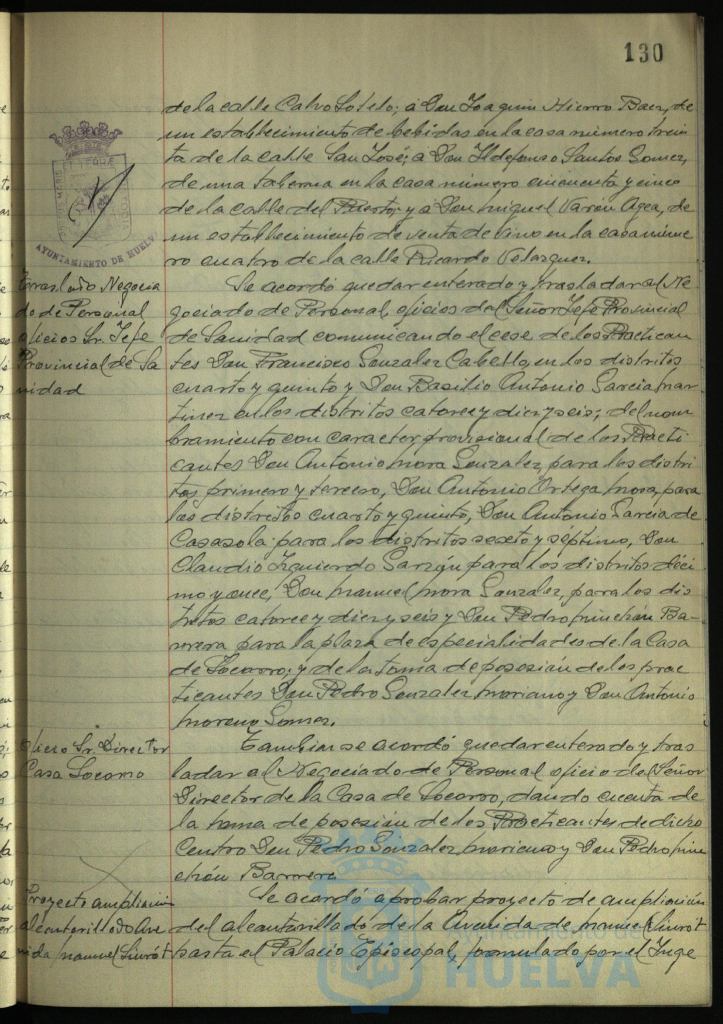 130
de la calle Calvo Sotelo; a Don Joaquin Hierro Baez, de
un establecimiento de bebidas en la casa número trein
ta de la calle San José; a Don Ildefonso Santos Gomez,
de una taberna en la casa número cincuenta y cinco
de la calle del Puerto; y a Don Miguel Varon Agea, de
un establecimiento de venta de vino en la casa núme
ro cuatro de la calle Ricardo Velazquez.
AYUNTAMIENTO DE HUELVA
Traslado Negocia
do de Personal
oficios Sr. Jefe
Provincial de Sa
nidad
Se acordó quedar enterado y trasladar al Ne
gociado de Personal, oficios del Señor Jefe Provincial
de Sanidad comunicando el cese de los Practican
tes Don Francisco Gonzalez Cabello, en los distritos
cuarto y quinto y Don Basilio Antonio Garcia Mar
tinez en los distritos catorce y diez y seis; del nom
bramiento con caracter provisional de los Practi
cantes Don Antonio Mora Gonzalez, para los distri
tos primero y tercero, Don Antonio Ortega Mora, para
los distritos cuarto y quinto, Don Antonio Garcia de
Casasola para los distritos sexto y séptimo, Don
Claudio Izquierdo Garzón para los distritos déci
mo y once, Don Manuel Mora Gonzalez, para los dis
tritos catorce y diez y seis y Don Pedro Minchón Ba-
rrera para la plaza de especialidades de la Casa
de Socorro; y de la toma de posesión de los prac
ticantes Don Pedro Gonzalez Mariano y Don Antonio
Moreno Gomez.
Oficio Sr. Director
Casa Socorro
Tambien se acordó quedar enterado y tras
ladar al Negociado de Personal oficio del Señor
Director de la Casa de Socorro, dando cuenta de
la toma de posesión de los Practicantes de dicho
Centro Don Pedro Gonzalez Mariano y Don Pedro Min
chón Barrera
Proyecto ampliación
alcantarillado Ave
nida Manuel Siurót
Se acordó aprobar proyecto de ampliación
del alcantarillado de la Avenida de Manuel Siurót
hasta el Palacio Episcopal, formulado por el Inge
HUELVA